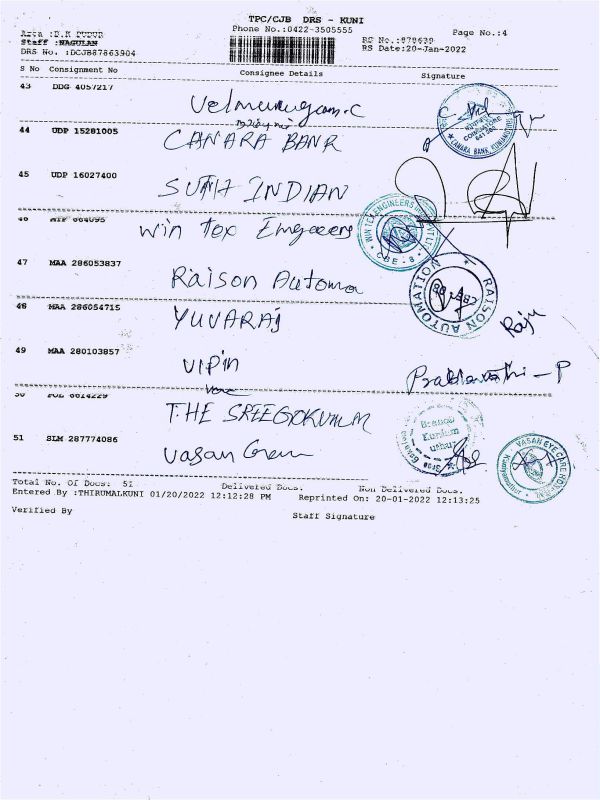 TPC/CJB DRS - KUNI
Phone No.:0422-3505555
Page No.:4
Area :B.K PUDUR
Staff :NAGULAN
RS No.:878639
RS Date:20-Jan-2022
DRS No. :DCJB87863904
S No Consignment No Consignee Details Signature
43 DDG 4057217 Velmurugan.C
44 UDP 15281005 CANARA BANK
CANARA BANK KUNIAMUTHUR
45 UDP 16027400 SUTH INDIAN
46 664095 Win Tex Engeeers
WIN TEX ENGINEERS
CBE - 8
47 MAA 286053837 Raison Automa
RAISON AUTOMATION
48 MAA 286054715 YUVARAJ Raju
49 MAA 280103857 VIPIN Prabhavathi - P
50 POL 6614229 THE SREEGOKULAM
Branch
51 SLM 287774086 Vasan
VASAN EYE CARE HOSPITAL
Total No. Of Docs: 51 Delivered Docs. Non Delivered Docs.
Entered By :THIRUMALKUNI 01/20/2022 12:12:28 PM Reprinted On: 20-01-2022 12:13:25
Verified By Staff Signature